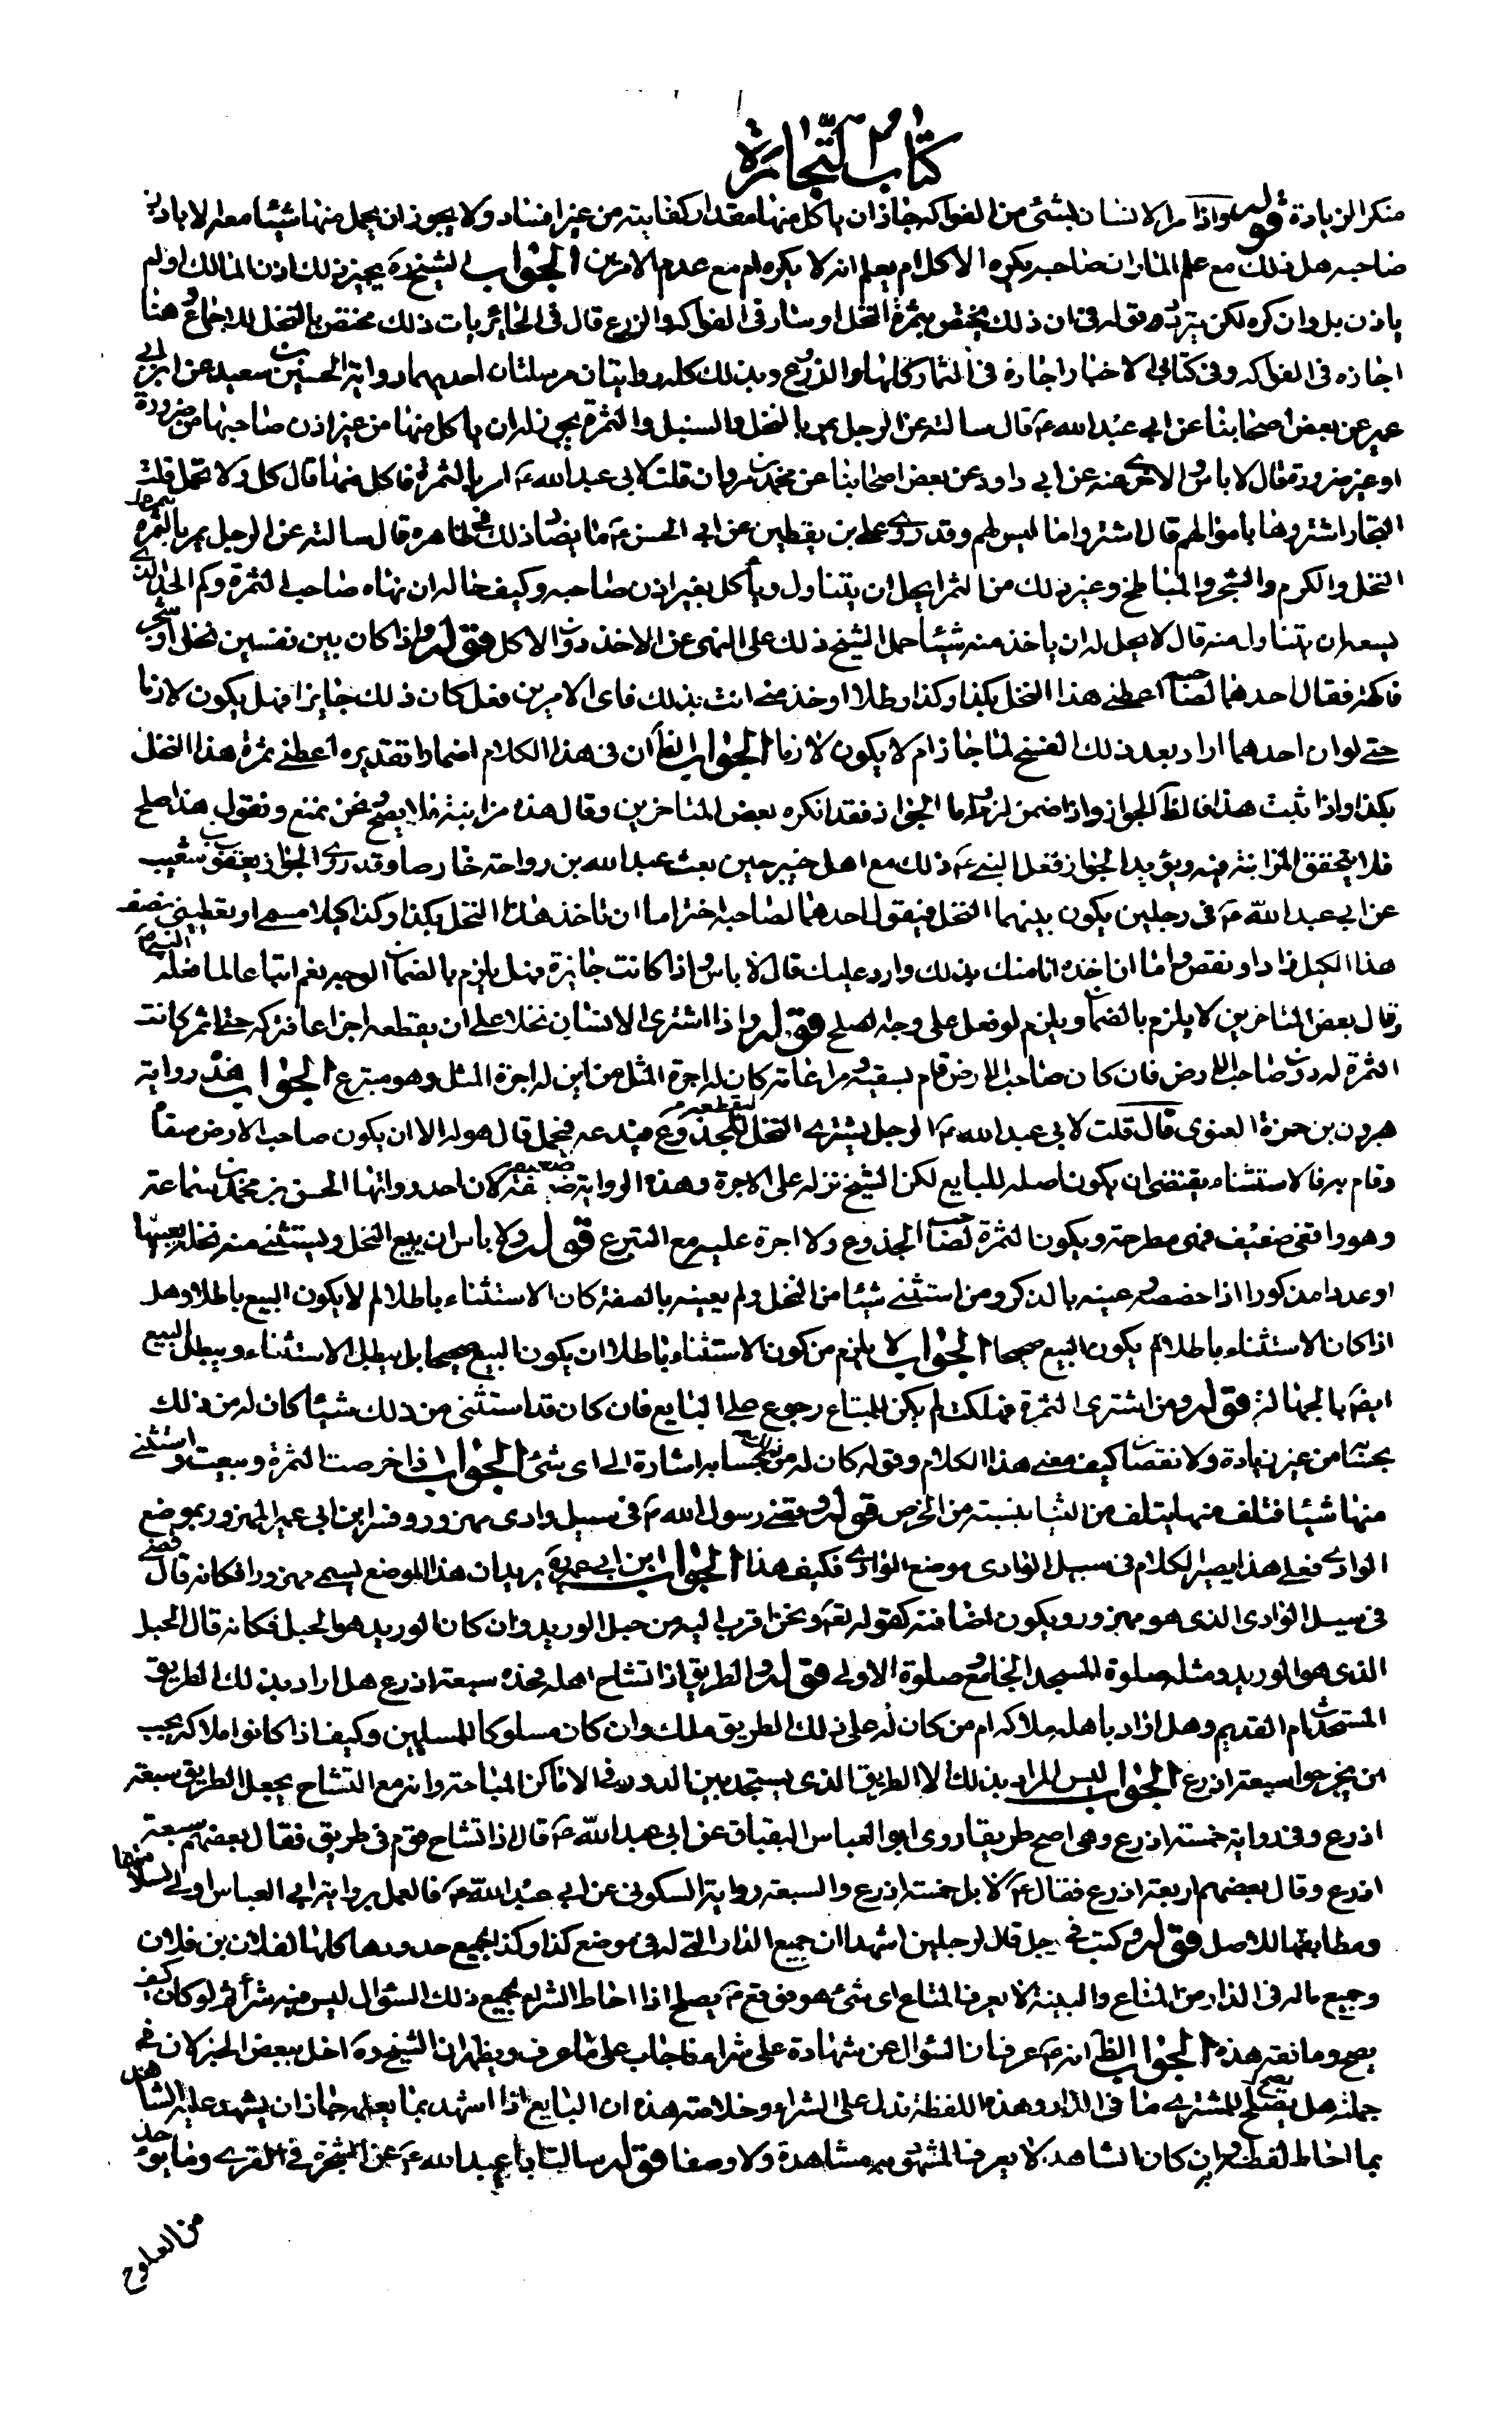 كتاب التجارة
منكر الزيادة قوله واذا مر الانسان بشئ من الفواكه جاز ان ياكل منها مقدار كفايته من غير افساد ولا يجوز ان يحمل منها شيئا معه الا باذن
صاحبه هل ذلك مع علم المار ان صاحبه يكره الاكل ام يعلم انه لا يكره ام مع عدم الامرين الجواب الشيخ ره يجيز ذلك اذن المالك او لم
ياذن بل وان كره لكن يتردد قوله في ان ذلك يختص بثمرة النخل او سار في الفواكه والزرع قال في الحائريات ذلك مختص بالنخل للاجماع وهنا
اجازه في الفواكه وفي كتابي الاخبار اجازه في الثمار كلها والزرع وبذلك كله روايتان مرسلتان احديهما رواية الحسين بن سعيد عن ابن ابي
عمير عن بعض اصحابنا عن ابي عبد الله ع قال سالته عن الرجل يمر بالنخل والسنبل والثمرة يجوز له ان ياكل منها من غير اذن صاحبها من ضرورة
او غير ضرورة قال لا باس والاخرى عنه عن ابي داود عن بعض اصحابنا عن محمد بن مروان قلت لابي عبد الله ع امر بالثمرة فاكل منها قال كل ولا تحمل قلت
التجار اشتروها باموالهم قال اشتروا ما ليس لهم وقد روى علي بن يقطين عن ابي الحسن ع ما يضاد ذلك في ظاهره قال سالته عن الرجل يمر بالثمرة
النخل والكرم والشجر والمباطخ وغير ذلك من الثمر ايحل ان يتناول وياكل بغير اذن صاحبه وكيف حاله ان نهاه صاحب الثمرة وكم الحد الذي
يسعه ان يتناول منه قال لا يحل له ان ياخذ منه شيئا حمل الشيخ ذلك على النهي عن الاخذ دون الاكل قوله واذا كان بين نفسين نخل او شجر
فاكثر فقال احدهما لصاحبه اعطني هذا النخل بكذا وكذا رطلا او خذ مني انت بذلك فاى الامرين فعل كان ذلك جايزا فهل يكون لازما
حتى لو ان احدهما اراد بعد ذلك الفسخ لما جاز ام لا يكون لازما الجواب الظ ان في هذا الكلام اضمارا تقديره اعطني ثمرة هذا النخل
بكذا واذا ثبت هذا فالظ الجواز واذا ضمن لزم اما الجواز فقد انكره بعض المتاخرين وقال هذه مزابنة فلا يصح ونحن نمنع ونقول هذا صلح
فلا يتحقق المزابنة فيه ويؤيد الجواز فعل النبي ع ذلك مع اهل خيبر حين بعث عبد الله بن رواحة خارصا وقد روى الجواز يعقوب بن شعيب
عن ابي عبد الله ع في رجلين يكون بينهما النخل فيقول احدهما لصاحبه اختر اما ان تاخذ هذا النخل بكذا وكذا كيلا مسمى او يعطيني نصف
هذا الكيل زاد او نقص واما ان اخذه انا منك بذلك وارد عليك قال لا باس واذا كانت جايزة فهل يلزم بالضمان الوجه نعم اتباعا لما فعله النبي ص
وقال بعض المتاخرين لا يلزم بالضمان ويلزم لو فعل على وجه الصلح قوله واذا اشترى الانسان نخلا على ان يقطعه اجذاعا فتركه حتى اثمر كانت
الثمرة له دون صاحب الارض فان كان صاحب الارض قام بسقيه ومراعاته كان له اجرة المثل من اين له اجرة المثل وهو متبرع الجواب هذه رواية
هرون بن حمزة الغنوى قال قلت لابي عبد الله ع الرجل يشترى النخل ليقطعه للجذوع فيدعه فيحمل قال هو له الا ان يكون صاحب الارض سقاه
وقام به فالاستثناء يقتضى ان يكون اصله للبايع لكن الشيخ نزله على الاجرة وهذه الرواية ضعيفة لان احد رواتها الحسن بن محمد بن سماعة
وهو واقفى ضعيف فهى مطرحة ويكون الثمرة لصاحب الجذوع ولا اجرة عليه مع التبرع قوله ولا باس ان يبيع النخل ويستثنى منه نخلة بعينها
او عددا مذكورا اذا خصصه وعينه بالذكر ومن استثنى شيئا من النخل ولم يعينه بالصفة كان الاستثناء باطلا لم لا يكون البيع باطلا وهل
اذا كان الاستثناء باطلا لم يكون البيع صحيحا الجواب لا يلزم من كون الاستثناء باطلا ان يكون البيع صحيحا بل يبطل الاستثناء ويبطل البيع
ايضا بالجهالة قوله ومن اشترى الثمرة فهلكت لم يكن للمبتاع رجوع على البايع فان كان قد استثنى من ذلك شيئا كان له من ذلك
بحسابه من غير زيادة ولا نقصان كيف معنى هذا الكلام وقوله كان له من ذلك بحسابه اشارة الى اى شئ الجواب اذا خرصت الثمرة وبيعت واستثنى
منها شيئا فتلف منها يتلف من الثنيا بنسبته من الخرص قوله وقضى رسول الله ص في سيل وادى مهزور وفسر ابن ابي عمير المهزور بموضع
الوادى فعلى هذا يصير الكلام في سيل الوادى موضع الوادى فكيف هذا الجواب ابن ابي عمير يريد ان هذا الموضع يسمى مهزورا فكانه قال قضى
في سيل الوادى الذى هو مهزور ويكون اضافته كقوله تع ونحن اقرب اليه من حبل الوريد وان كان الوريد هو الحبل فكانه قال الحبل
الذى هو الوريد ومثله صلوة المسجد الجامع وصلوة الاولى قوله والطريق اذا تشاح اهله فحده سبعة اذرع هل اراد بذلك الطريق
المستحدث ام القديم وهل اراد باهله ملاكه ام من كان له على ذلك الطريق ملك وان كان مسلوكا للمسلمين وكيف اذا كانوا ملاكه يجب
ان يخرجوا سبعة اذرع الجواب ليس المراد بذلك الا الطريق الذى يستجد بين الدور في الاماكن المباحة وانه مع التشاح يجعل الطريق سبعة
اذرع وفي رواية خمسة اذرع وهى اصح طريقا روى ابو العباس البقباق عن ابي عبد الله ع قال اذا تشاح قوم في طريق فقال بعضهم سبعة
اذرع وقال بعضهم اربعة اذرع فقال ع لا بل خمسة اذرع والسبعة رواية السكونى عن ابي عبد الله ع فالعمل برواية ابي العباس اولى لسلامتها
ومطابقتها للاصل قوله وكتب في رجل قال لرجلين اشهدا ان جميع الدار التى له في موضع كذا وكذا بجميع حدودها كلها لفلان بن فلان
وجميع ماله في الدار من المتاع والبينة لا يعرف المتاع اى شئ هو فوقع ع يصلح اذا احاط الشراء بجميع ذلك السؤال ليس فيه شراء ثم لو كان كيف
يصح وما نقد هذه الجواب الظ انه ع عرف ان السؤال عن شهادة على شراء فاجاب على ما عرف ويظهر ان الشيخ ره اخل ببعض الخبر لان في
جملته هل يصلح للمشترى ما في الدار وهذه اللفظة تدل على الشراء وخلاصة هذه ان البايع اذا اشهد بما يعلمه جاز ان يشهد عليه الشاهد
بما احاط لفظه به وان كان الشاهد لا يعرف المشهود به مشاهدة ولا وصفا قوله سالت ابا عبد الله ع عن الشجرة في القرى وما يؤخذ
من العلوج